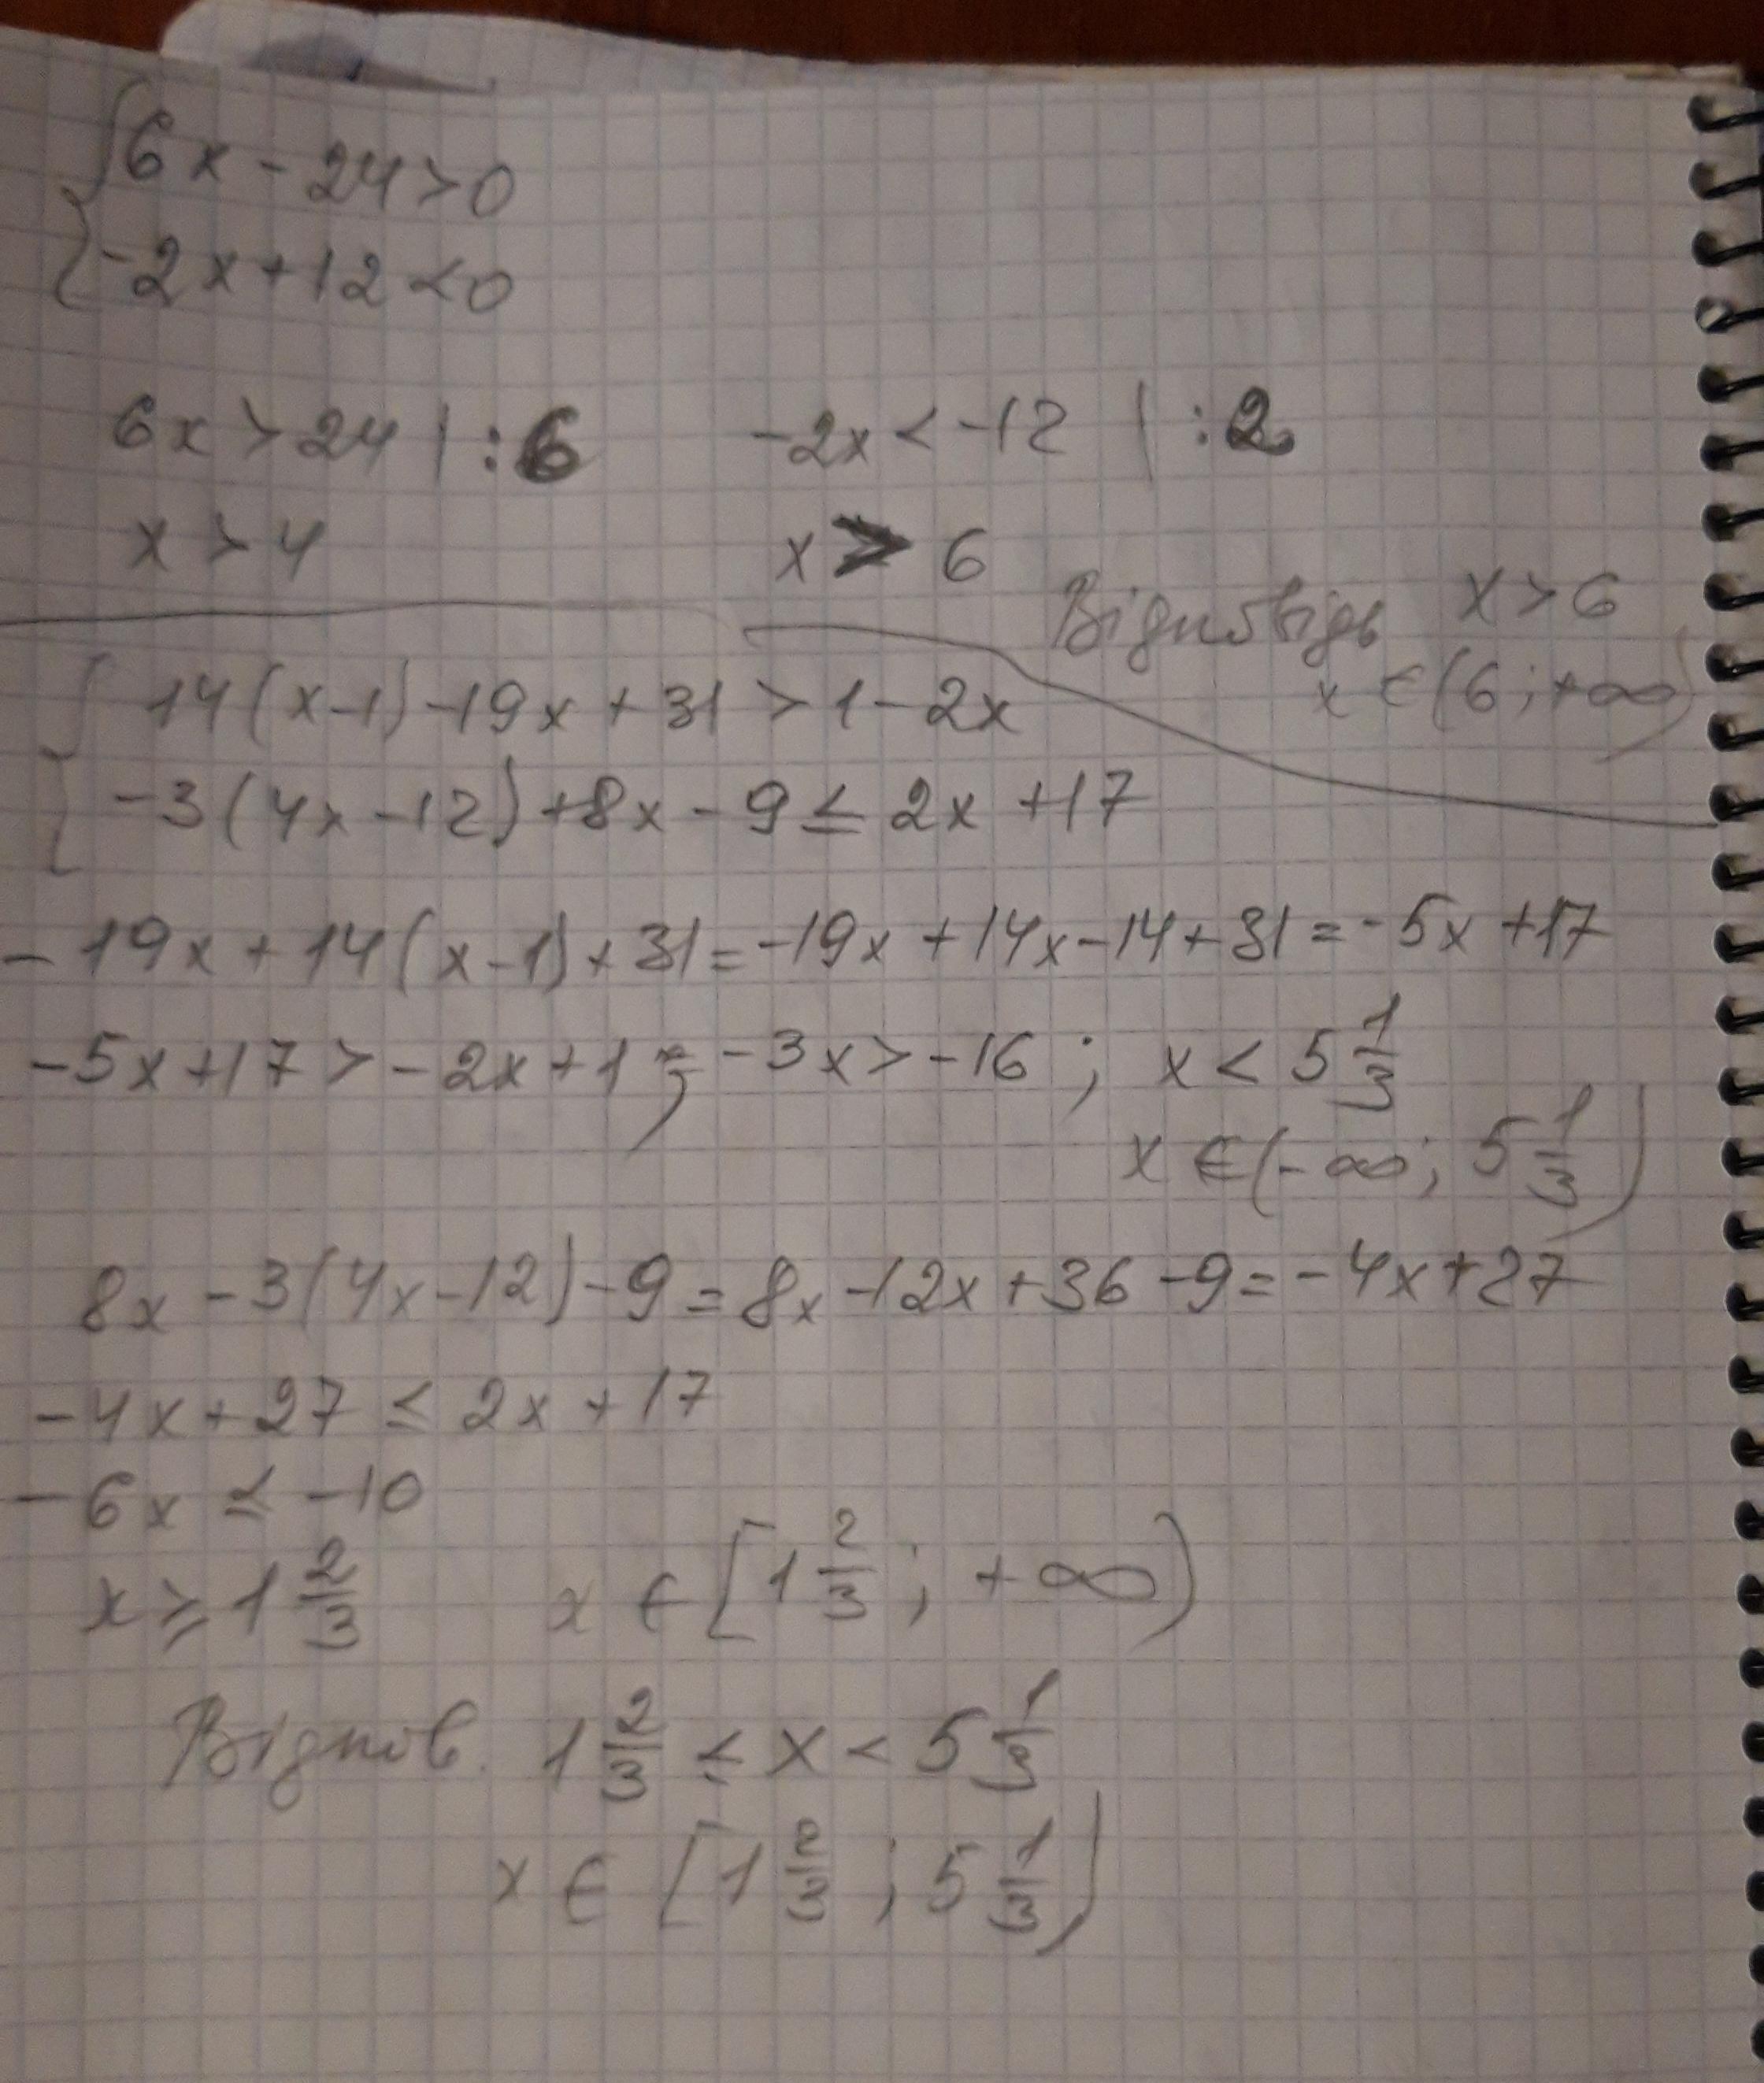 {6x - 24 > 0
{-2x + 12 < 0
6x > 24 | : 6
-2x < -12 | : 2
x > 4
x > 6
Відповідь x > 6
x ∈ (6 ; +∞)
{14(x-1) - 19x + 31 > 1 - 2x
{-3(4x - 12) + 8x - 9 ≤ 2x + 17
- 19x + 14(x-1) + 31 = -19x + 14x - 14 + 31 = -5x + 17
-5x + 17 > -2x + 1 ; -3x > -16 ; x < 5 1/3
x ∈ (-∞ ; 5 1/3)
8x - 3(4x - 12) - 9 = 8x - 12x + 36 - 9 = -4x + 27
-4x + 27 ≤ 2x + 17
-6x ≤ -10
x ≥ 1 2/3
x ∈ [1 2/3 ; +∞)
Відпов. 1 2/3 ≤ x < 5 1/3
x ∈ [1 2/3 ; 5 1/3)